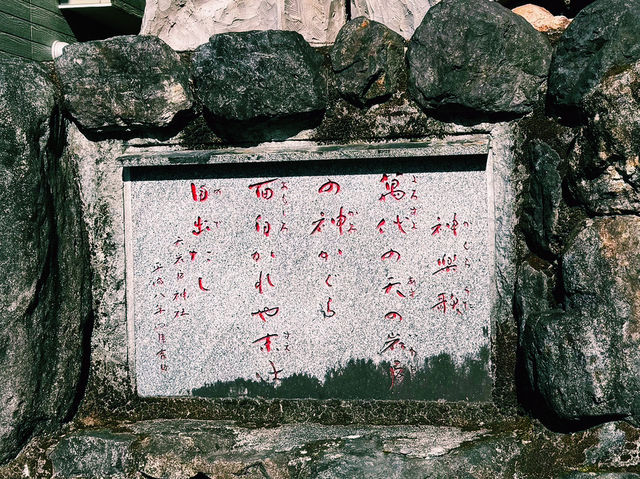 神樂歌
萬代の天の岩戸
の神かぐら
面白かれや末は
目出たし
神社
平成八年十一月吉日